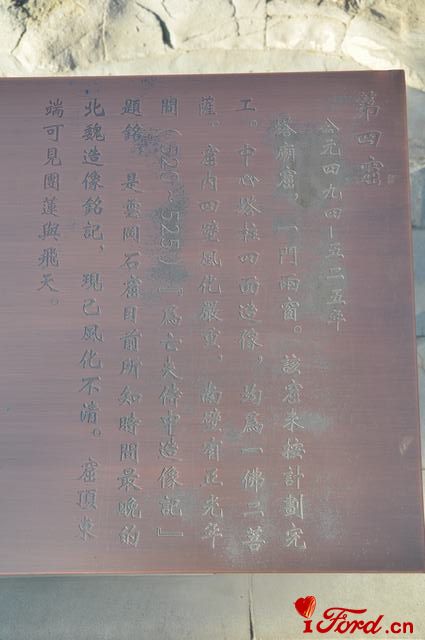 第四窟
公元四九四—五二五年
塔廟窟，一門兩窗。該窟未按計劃完
工。中心塔柱四面造像，均爲一佛二菩
薩。窟内四壁風化嚴重，南壁有正光年
間（520—525）『爲亡夫侍中造像記』
題銘，是雲岡石窟目前所知時間最晚的
北魏造像銘記，現已風化不清。窟頂東
端可見團蓮與飛天。
iFord.cn